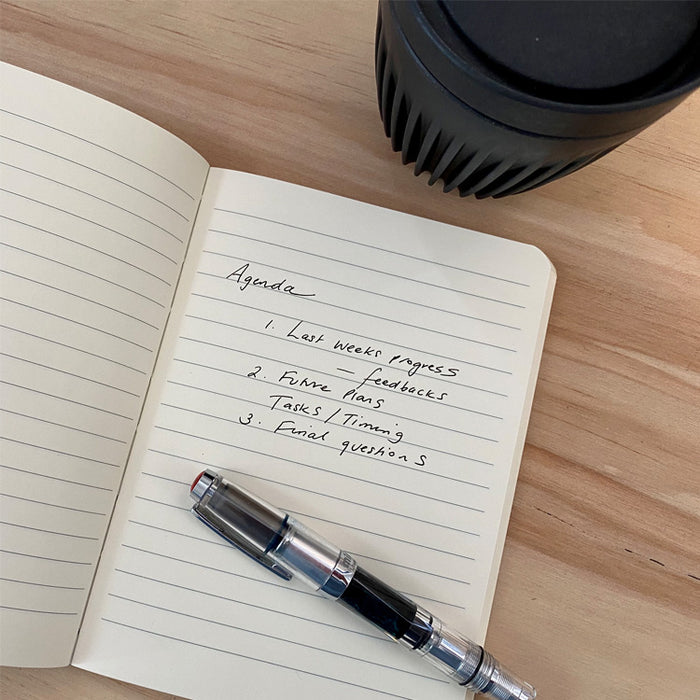 Agenda
1. Last weeks progress
— feedbacks
2. Future plans
Tasks / Timing
3. Final questions